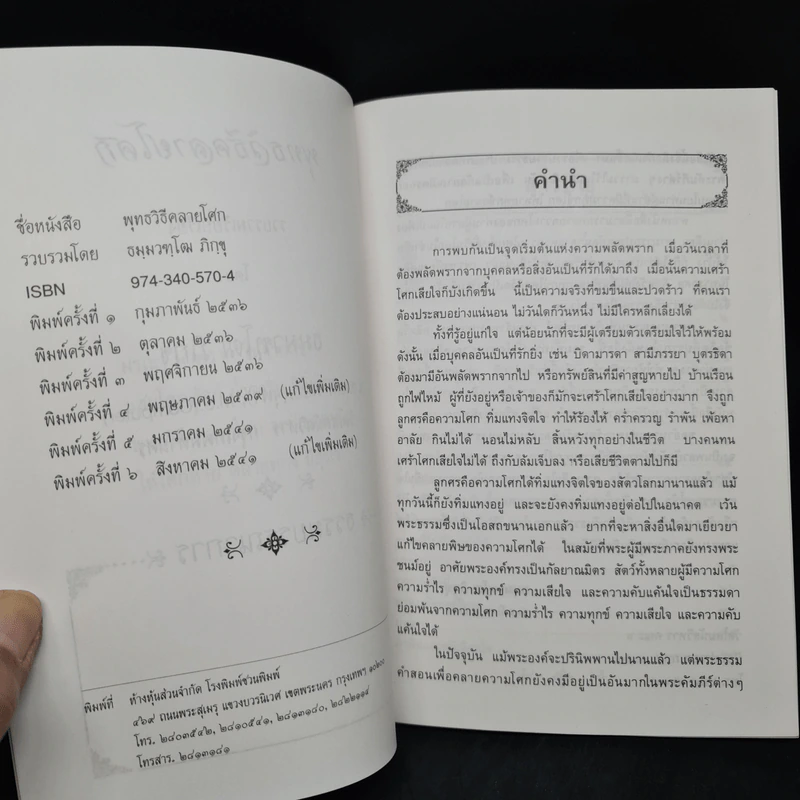 ชื่อหนังสือ พุทธวิธีคลายโศก
รวบรวมโดย ธมฺมวฑฺโฒ ภิกฺขุ
ISBN 974-340-570-4
พิมพ์ครั้งที่ ๑ กุมภาพันธ์ ๒๕๓๖
พิมพ์ครั้งที่ ๒ ตุลาคม ๒๕๓๖
พิมพ์ครั้งที่ ๓ พฤศจิกายน ๒๕๓๖
พิมพ์ครั้งที่ ๔ พฤษภาคม ๒๕๓๙ (แก้ไขเพิ่มเติม)
พิมพ์ครั้งที่ ๕ มกราคม ๒๕๔๑
พิมพ์ครั้งที่ ๖ สิงหาคม ๒๕๔๑ (แก้ไขเพิ่มเติม)
พิมพ์ที่ ห้างหุ้นส่วนจำกัด โรงพิมพ์ชวนพิมพ์
๔๖๙ ถนนพระสุเมรุ แขวงบวรนิเวศ เขตพระนคร กรุงเทพฯ ๑๐๒๐๐
โทร. ๒๘๐๓๕๔๒, ๒๘๑๐๕๔๑, ๒๘๑๓๑๘๐, ๒๘๒๒๑๑๔
โทรสาร. ๒๘๑๓๑๘๑
คำนำ
การพบกันเป็นจุดเริ่มต้นแห่งความพลัดพราก เมื่อวันเวลาที่
ต้องพลัดพรากจากบุคคลหรือสิ่งอันเป็นที่รักได้มาถึง เมื่อนั้นความเศร้า
โศกเสียใจก็บังเกิดขึ้น นี้เป็นความจริงที่ขมขื่นและปวดร้าว ที่คนเรา
ต้องประสบอย่างแน่นอน ไม่วันใดก็วันหนึ่ง ไม่มีใครหลีกเลี่ยงได้
ทั้งที่รู้อยู่แก่ใจ แต่น้อยนักที่จะมีผู้เตรียมตัวเตรียมใจไว้ให้พร้อม
ดังนั้น เมื่อบุคคลอันเป็นที่รักยิ่ง เช่น บิดามารดา สามีภรรยา บุตรธิดา
ต้องมามีอันพลัดพรากจากไป หรือทรัพย์สินที่มีค่าสูญหายไป บ้านเรือน
ถูกไฟไหม้ ผู้ที่ยังอยู่หรือเจ้าของก็มักจะเศร้าโศกเสียใจอย่างมาก จึงถูก
ลูกศรคือความโศก ทิ่มแทงจิตใจ ทำให้ร้องไห้ คร่ำครวญ รำพัน เพ้อหา
อาลัย กินไม่ได้ นอนไม่หลับ สิ้นหวังทุกอย่างในชีวิต บางคนทน
เศร้าโศกเสียใจไม่ได้ ถึงกับล้มเจ็บลง ฯหรือเสียชีวิตตามไปก็มี
ลูกศรคือความโศกได้ทิ่มแทงจิตใจของสัตว์โลกมานานแล้ว แม้
ทุกวันนี้ก็ยังทิ่มแทงอยู่ และจะยังคงทิ่มแทงอยู่ต่อไปในอนาคต เว้น
พระธรรมซึ่งเป็นโอสถขนานเอกแล้ว ยากที่จะหาสิ่งอื่นใดมาเยียวยา
แก้ไขคลายพิษของความโศกได้ ในสมัยที่พระผู้มีพระภาคยังทรงพระ
ชนม์อยู่ อาศัยพระองค์ทรงเป็นกัลยาณมิตร สัตว์ทั้งหลายผู้มีความโศก
ความร่ำไร ความทุกข์ ความเสียใจ และความคับแค้นใจเป็นธรรมดา
ย่อมพ้นจากความโศก ความร่ำไร ความทุกข์ ความเสียใจ และความคับ
แค้นใจได้
ในปัจจุบัน แม้พระองค์จะปรินิพพานไปนานแล้ว แต่พระธรรม
คำสอนเพื่อคลายความโศกยังคงมีอยู่เป็นอันมากในพระคัมภีร์ต่างๆ